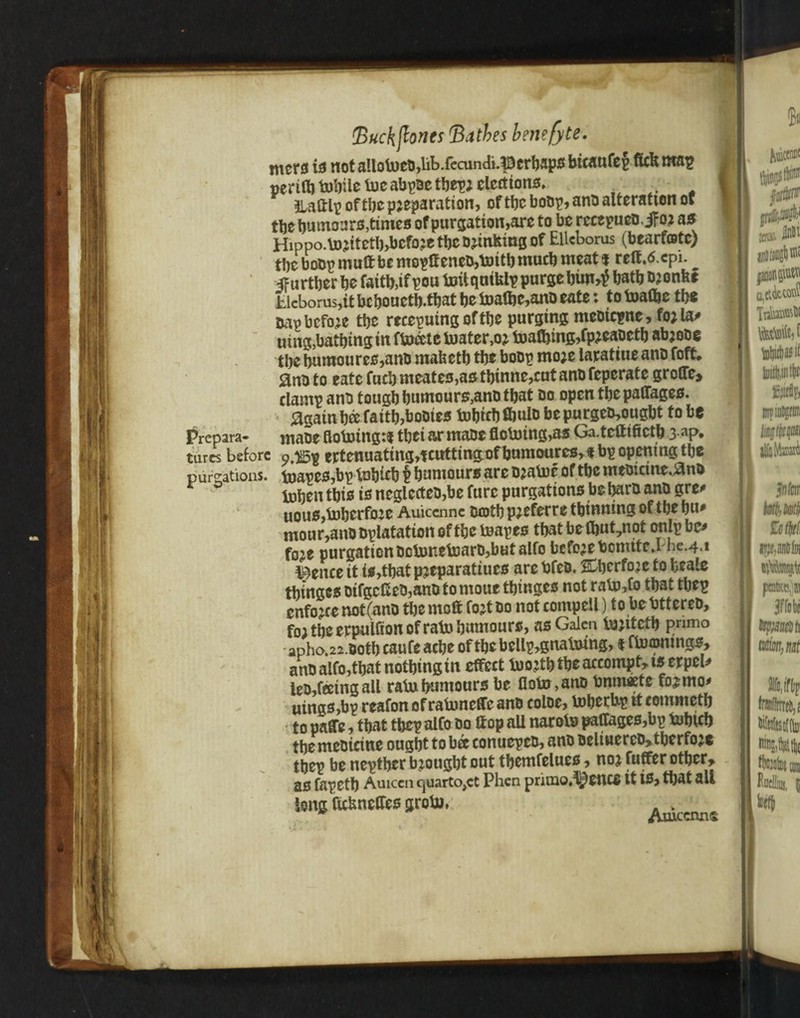 Buckstones Bathes benefyte.
mers is not allowed, lib. secundi. Perhaps bicause þe sick may
perish while we abyde theyr elections.
Lastly of the preparation, of the body, and alteration of
the humours, times of purgation, are to be receyued. For as
Hippo. writeth, before the drinking of Elleborus (bearfoote)
the body must be moystened, with much meat & rest. 6. epi.
Further he saith, if you wil quikly purge him, þt hath dronke
Elcborus, it behoueth. that he washe, and eate: to washe the
day before the receyuing of the purging medicyne, for la-
uing, bathing in sweete water, or washing, spreadeth abrode
the humoures, and maketh the body more laxatiue and soft.
And to eate such meates, as thinne, cut and seperate grosse,
clamy and tough humours, and that do open the passages.
Again hée saith, bodies which shuld be purged, ought to be
made flowing: & thei ar made flowing, as Ga. testifieth 3. ap.
Prepara-
tures before
purgations.
9. By extenuating, & cutting of humoures, & by opening the
wayes, by which þe humours are drawē of the medicine. And
when this is neglected, be sure purgations be hard and gre-
uous, wherfore Auicenne dooth preferre thinning of the hu-
mour, and dylatation of the wayes that be shut, not only be-
fore purgation downeward, but also before vomite. Phe. 4. 1
Hence it is, that preparatiues are vsed. Wherfore to heale
thinges disgested, and to moue thinges not raw, so that they
enforce not (and the most sort do not compell) to be vttered,
for the expulsion of raw humours, as Galen writeth primo
apho. 22. doth cause ache of the belly, gnawing, & swoonings,
and also, that nothing in effect worth the accompt, is expel-
led, séeing all raw humours be slow, and vnméete for mo-
uings, by reason of rawnesse and colde, wherby it commeth
to passe, that they also do stop all narow passages, by which
the medicine ought to bée conueyed, and deliuered, therfore
they be neyther brought out themselues, nor suffer other,
as sayeth Auicen quarto, et Phen primo. Hence it is, that all
long sicknesses grow.
Auicenne